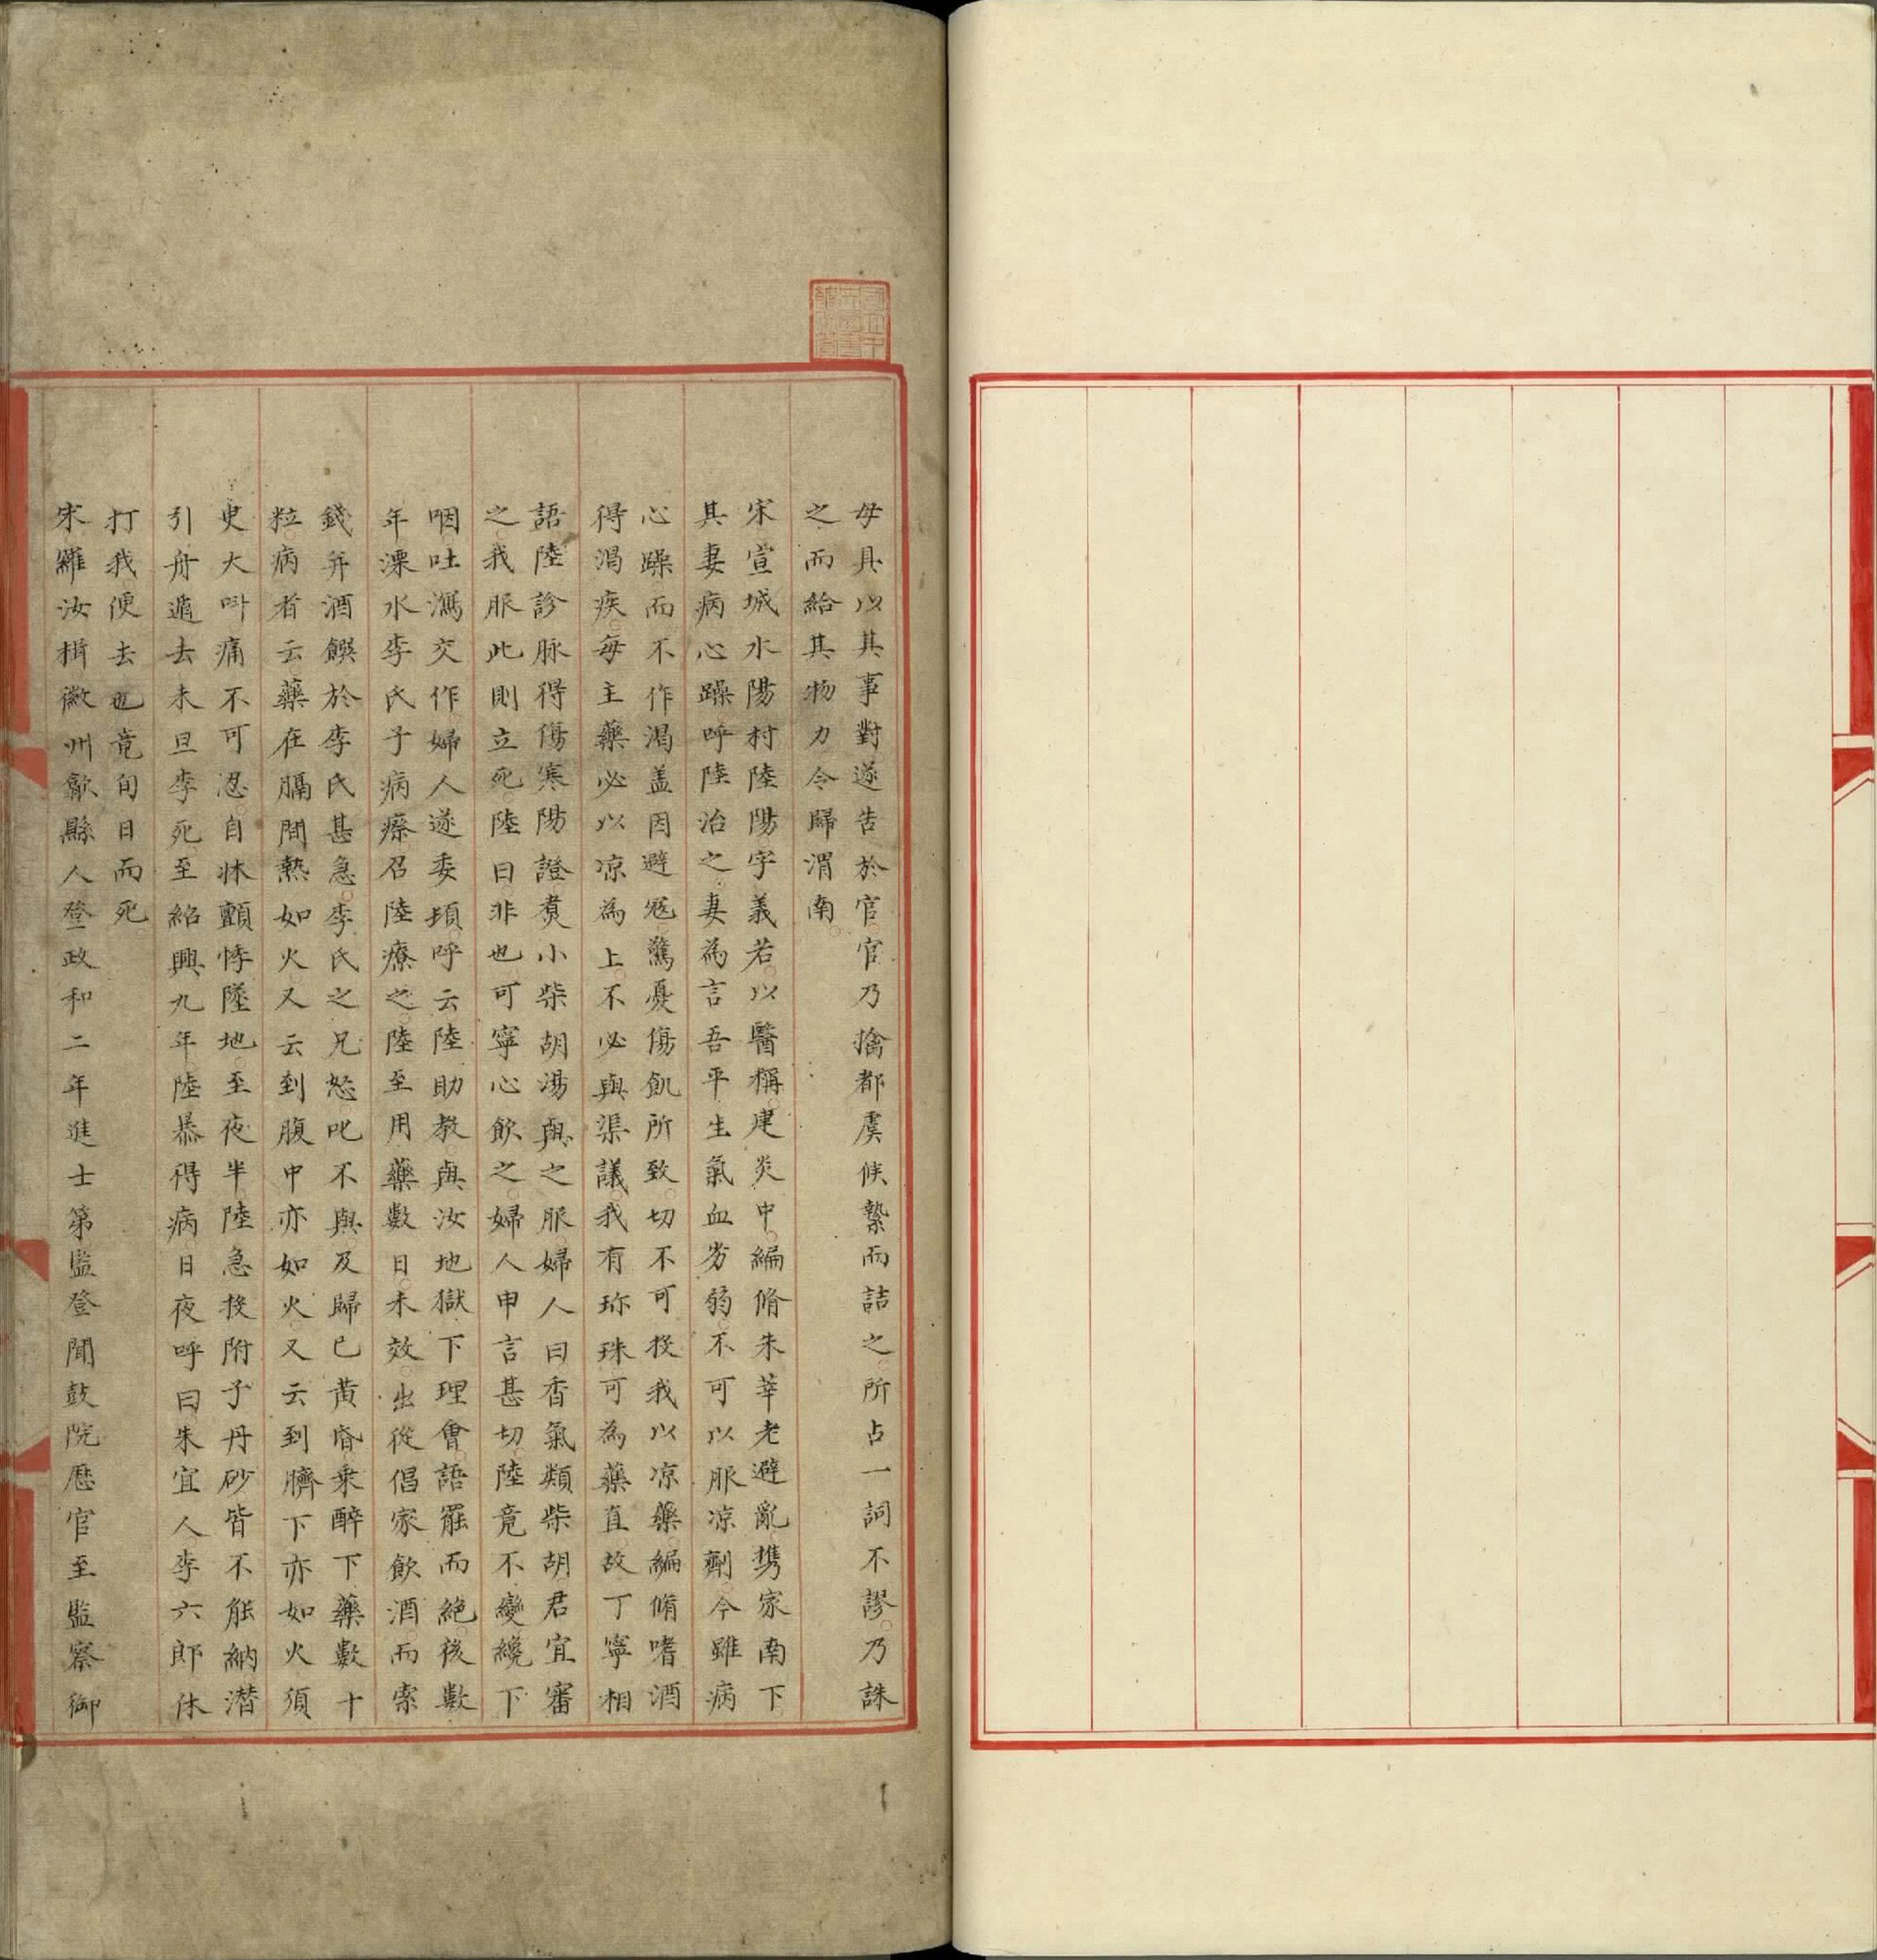 母具以其事對遂告於官官乃擒都虞候縶而詰之所占一詞不謬乃誅
之而給其物力令歸渭南
宋宣城水陽村陸陽字義若以醫稱建炎中編脩朱莘老避亂携家南下
其妻病心躁呼陸治之妻為言吾平生氣血劣弱不可以服凉劑今雖病
心躁而不作渴盖因避寇驚憂傷飢所致切不可投我以凉藥編脩嗜酒
得渴疾每主藥必以凉為上不必與渠議我有珎珠可為藥直故丁寧相
語陸診脉得傷寒陽證煑小柴胡湯與之服婦人曰香氣類柴胡君宜審
之我服此則立死陸曰非也可寧心飲之婦人申言甚切陸竟不變纔下
咽吐瀉交作婦人遂委頓呼云陸助教與汝地獄下理會語罷而絶後數
年溧水李氏子病瘵召陸療之陸至用藥數日未效出從倡家飲酒而索
錢并酒饌於李氏甚急李氏之兄怒叱不與及歸已黄昏乘醉下藥數十
粒病者云藥在膈間熱如火又云到腹中亦如火又云到臍下亦如火須
臾大呌痛不可忍自牀顫悸墜地至夜半陸急投附子丹砂皆不能納潜
引舟遁去未旦李死至紹興九年陸暴得病日夜呼曰朱宜人李六郎休
打我便去也竟旬日而死
宋羅汝楫徽州歙縣人登政和二年進士第監登聞鼓院歷官至監察御